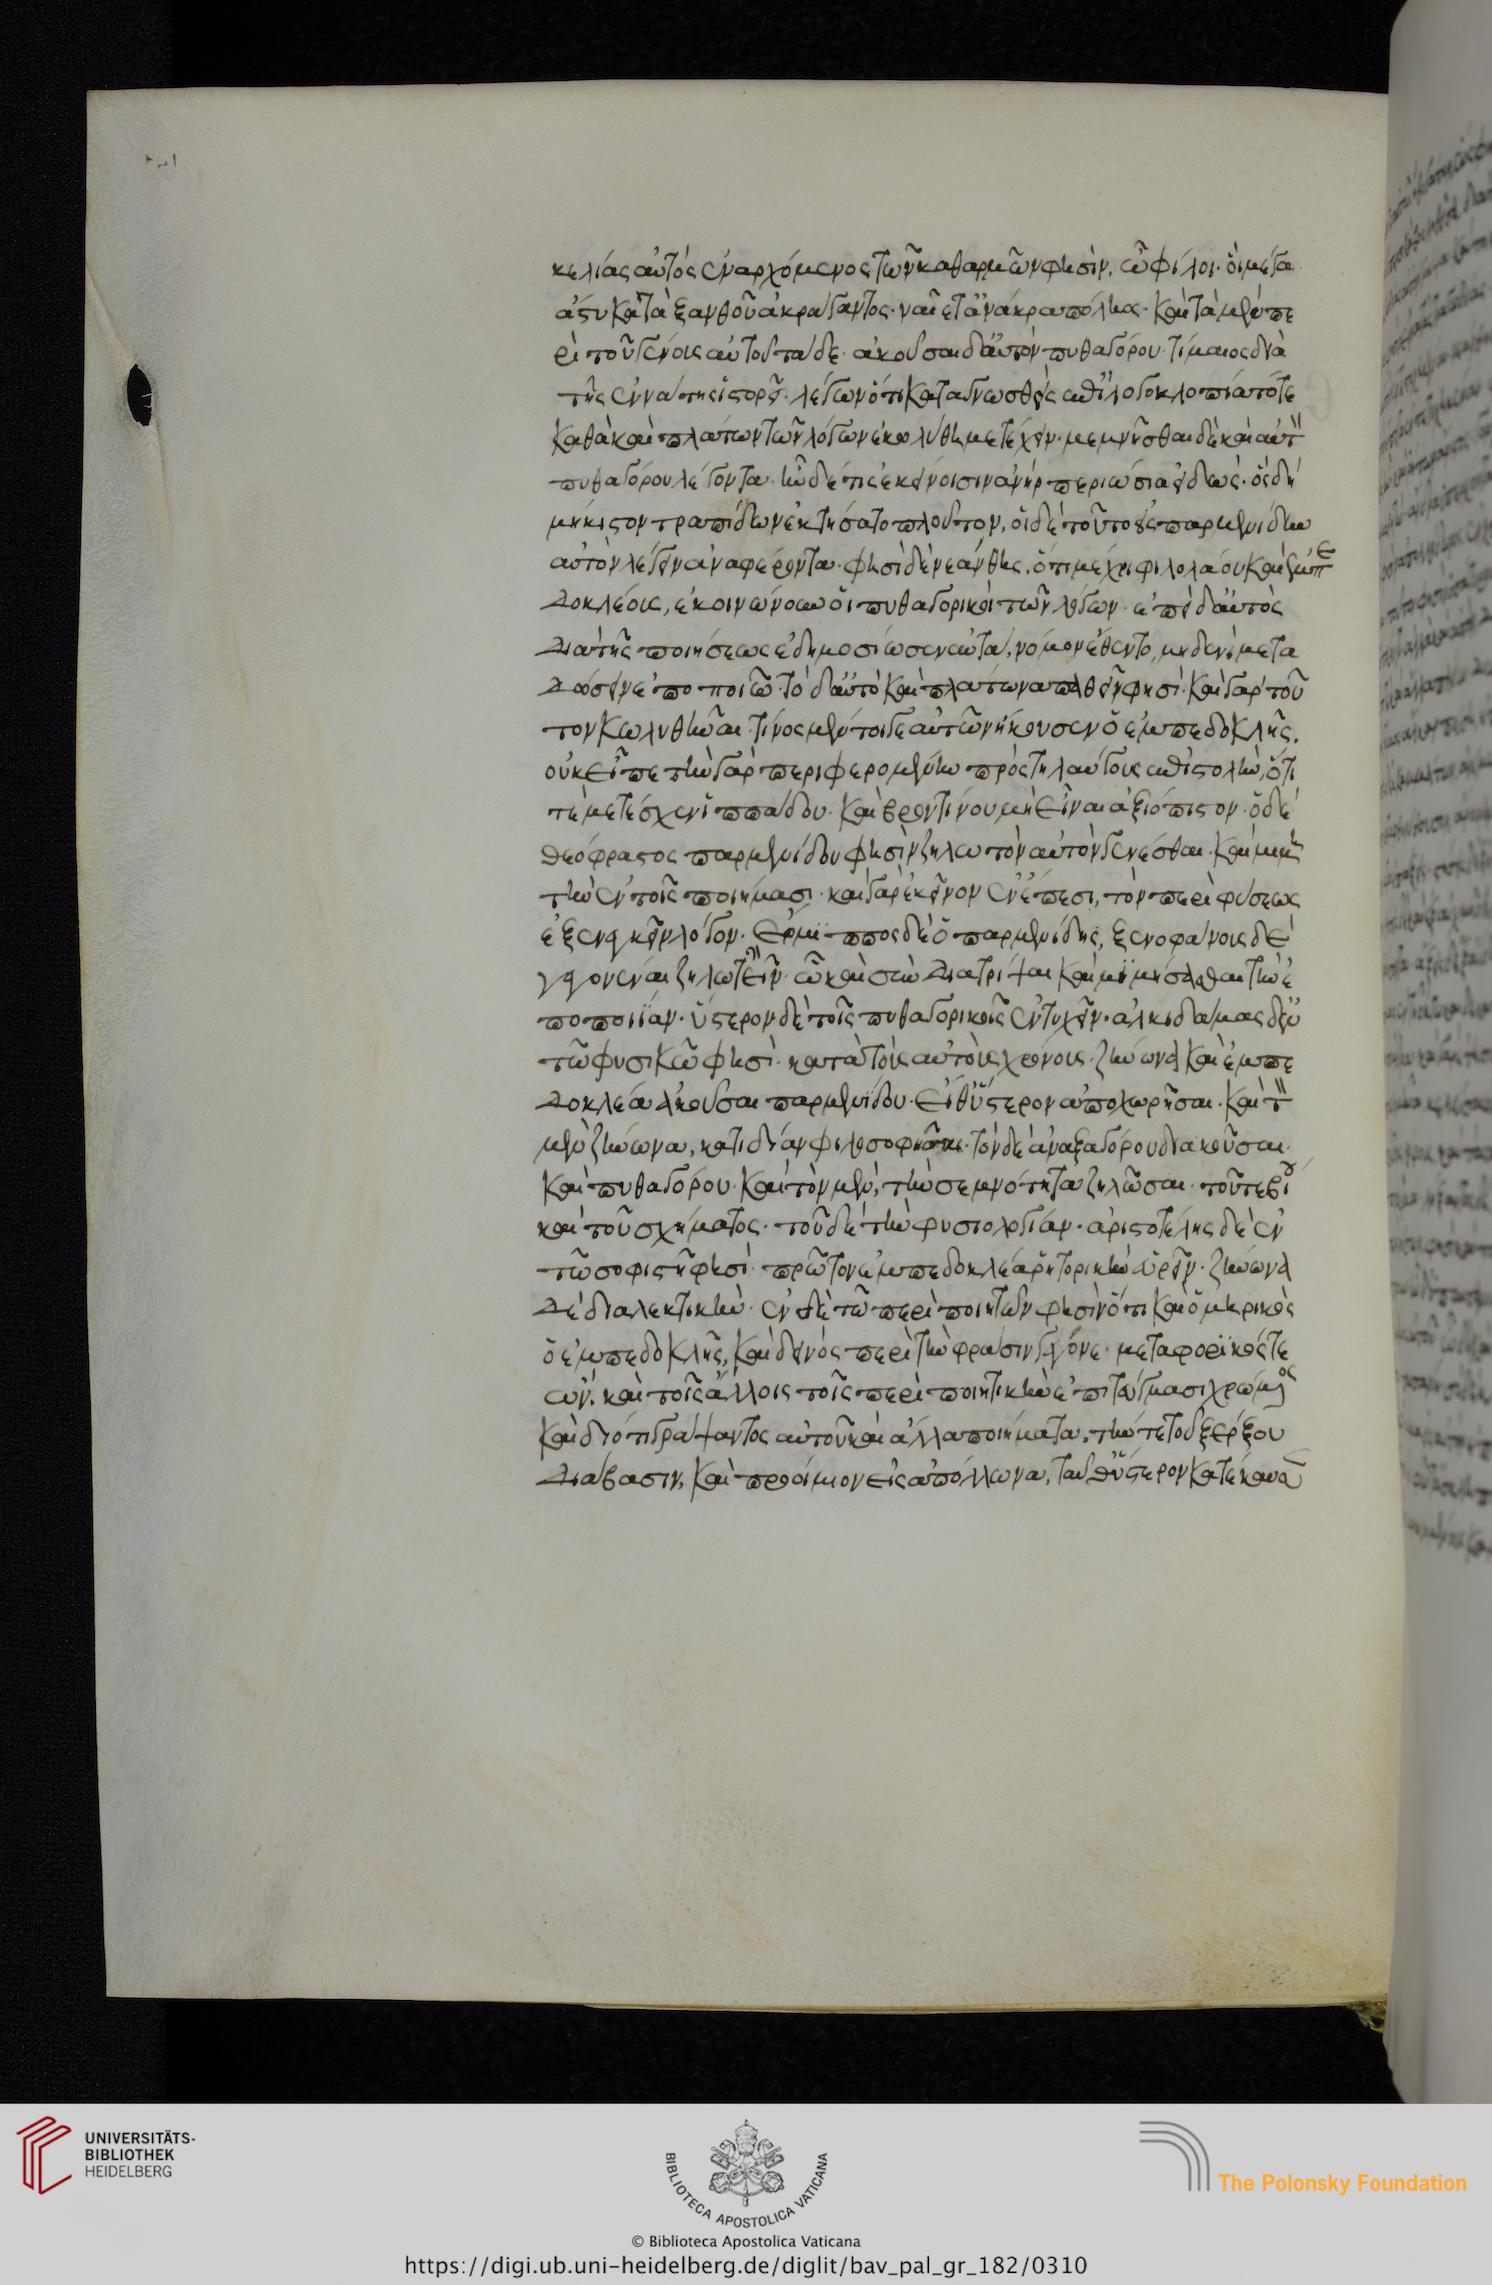 κελίας αὐτὸς ἐναρχόμενος τῶν καθαρμῶν φησὶν. ὦ φίλοι. οἳ μέγα
ἄστυ κατὰ ξανθοῦ ἀκράγαντος. ναίετ' ἀνάκρα πόληος. καὶ τὰ μὲν πε
ρὶ τοῦ γένους αὐτοῦ τάδε. ἀκοῦσαι δ' αὐτὸν πυθαγόρου τίμαιος διὰ
τῆς ἐννάτης ἱστορεῖ. λέγων ὅτι καταγνωσθεὶς ἐπὶ λογοκλοπία τότε
καθὰ καὶ πλάτων τῶν λόγων ἐκωλύθη μετέχειν. μεμνῆσθαι δὲ καὶ αὐτὸν
πυθαγόρου λέγοντα. ἦν δέ τις ἐκείνοισιν ἀνὴρ περιώσια εἰδώς. ὃς δὴ
μήκιστον πραπίδων ἐκτήσατο πλοῦτον, οἱ δὲ τοῦτο εἰς παρμενίδην
αὐτὸν λέγειν ἀναφέροντα. φησὶ δὲ νεάνθης, ὅτι μέχρι φιλολάου καὶ ἐμπε
δοκλέους, ἐκοινώνουν οἱ πυθαγορικοὶ τῶν λόγων. ἐπεὶ δ' αὐτὸς
διὰ τῆς ποιήσεως ἐδημοσίωσεν αὐτὰ, νόμον ἔθεντο, μηδενὶ μετα
δώσειν ἐποποιῶ. τὸ δ' αὐτὸ καὶ πλάτωνα παθεῖν φησὶ. καὶ γὰρ τοῦ
τον κωλυθῆναι. τίνος μέν τοι γε αὐτῶν ἤκουσεν ὁ ἐμπεδοκλῆς,
οὐκ εἶπε τὴν γὰρ περιφερομένην πρὸς τηλαύγους ἐπιστολὴν, ὅτι
τὲ μετέσχεν ἱππάσου. καὶ βροντίνου μὴ εἶναι ἀξιόπιστον. ὁ δὲ
θεόφραστος παρμενίδου φησὶν ζηλωτὸν αὐτὸν γενέσθαι. καὶ μιμη
τὴν ἐν τοῖς ποιήμασι. καὶ γὰρ ἐκεῖνον ἐν ἔπεσι, τὸν περὶ φύσεως
ἐξενεγκεῖν λόγον. ἕρμιππος δὲ οὐ παρμενίδης, ξενοφάνους δὲ
γεγονέναι ζηλωτὴν. ὧ καὶ συνδιατρίψαι καὶ μιμήσασθαι τὴν ἐ
ποποιΐαν. ὕστερον δὲ τοῖς πυθαγορικοῖς ἐντυχεῖν. ἀλκιδάμας δ' ἐν
τῶ φυσικῶ φησὶ. κατὰ τοὺς αὐτοὺς χρόνους. ζήνωνα καὶ ἐμπε
δοκλέα ἀκοῦσαι παρμενίδου. εἶθ' ὕστερον ἀποχωρῆσαι. καὶ τὸν
μὲν ζήνωνα, κατιδίαν φιλοσοφῆσαι. τὸν δὲ ἀναξαγόρου διακοῦσαι.
καὶ πυθαγόρου. καὶ τὸν μὲν, τὴν σεμνότητα ζηλῶσαι. τοῦ τε βίου
καὶ τοῦ σχήματος. τοῦ δὲ τὴν φυσιολογίαν. ἀριστοτέλης δὲ ἐν
τῶ σοφιστῆ φησὶ. πρῶτον ἐμπεδοκλέα ῥητορικὴν εὑρεῖν. ζήνωνα
δὲ διαλεκτικὴν. ἐν δὲ τῶ περὶ ποιητῶν φησὶν ὅτι καὶ ὁμηρικὸς
ὁ ἐμπεδοκλῆς, καὶ δεινὸς περὶ τὴν φράσιν γέγονε. μεταφορϊκός τε
ὢν. καὶ τοῖς ἄλλοις τοῖς περὶ ποιητικὴν ἐπιτεύγμασι χρώμενος
καὶ διότι γράψαντος αὐτοῦ καὶ ἄλλα ποιήματα, τήν τε τοῦ ξέρξου
διάβασιν, καὶ προοίμιον εἰς ἀπόλλωνα, ταῦθ' ὕστερον κατέκαυσεν
UNIVERSITÄTS-
BIBLIOTHEK
HEIDELBERG
BIBLIOTECA APOSTOLICA VATICANA
The Polonsky Foundation
© Biblioteca Apostolica Vaticana
https://digi.ub.uni-heidelberg.de/diglit/bav_pal_gr_182/0310